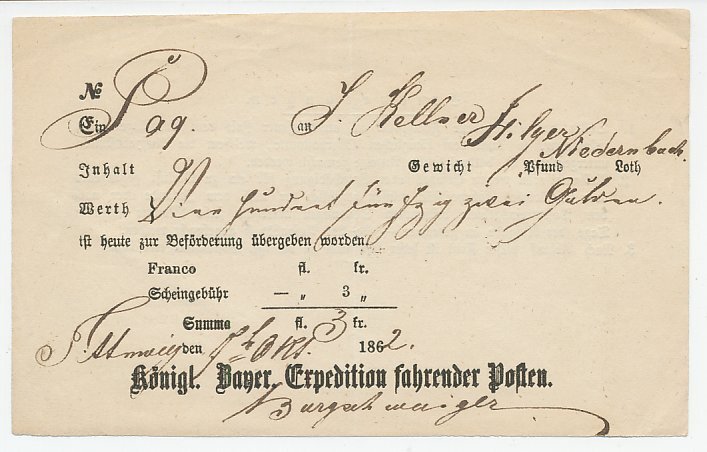 №
Ein Paq. an J. Kellner Hilger
Niedernbach.
Inhalt Gewicht Pfund Loth
Werth Vier hundert fünfzig zwei Gulden.
ist heute zur Beförderung übergeben worden.
Franco fl. kr.
Scheingebühr — „ 3 „
Summa fl. 3 kr.
den Okt. 1862.
Königl. Bayer. Expedition fahrender Posten.